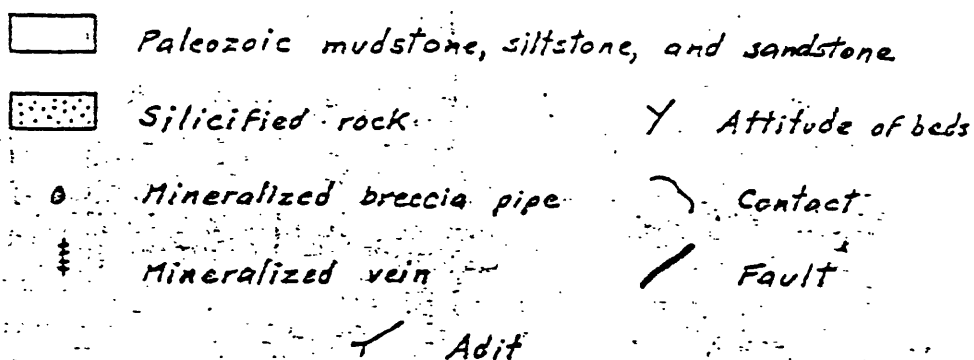 Paleozoic mudstone, siltstone, and sandstone
Silicified rock
Attitude of beds
Mineralized breccia pipe
Contact
Mineralized vein
Fault
Adit